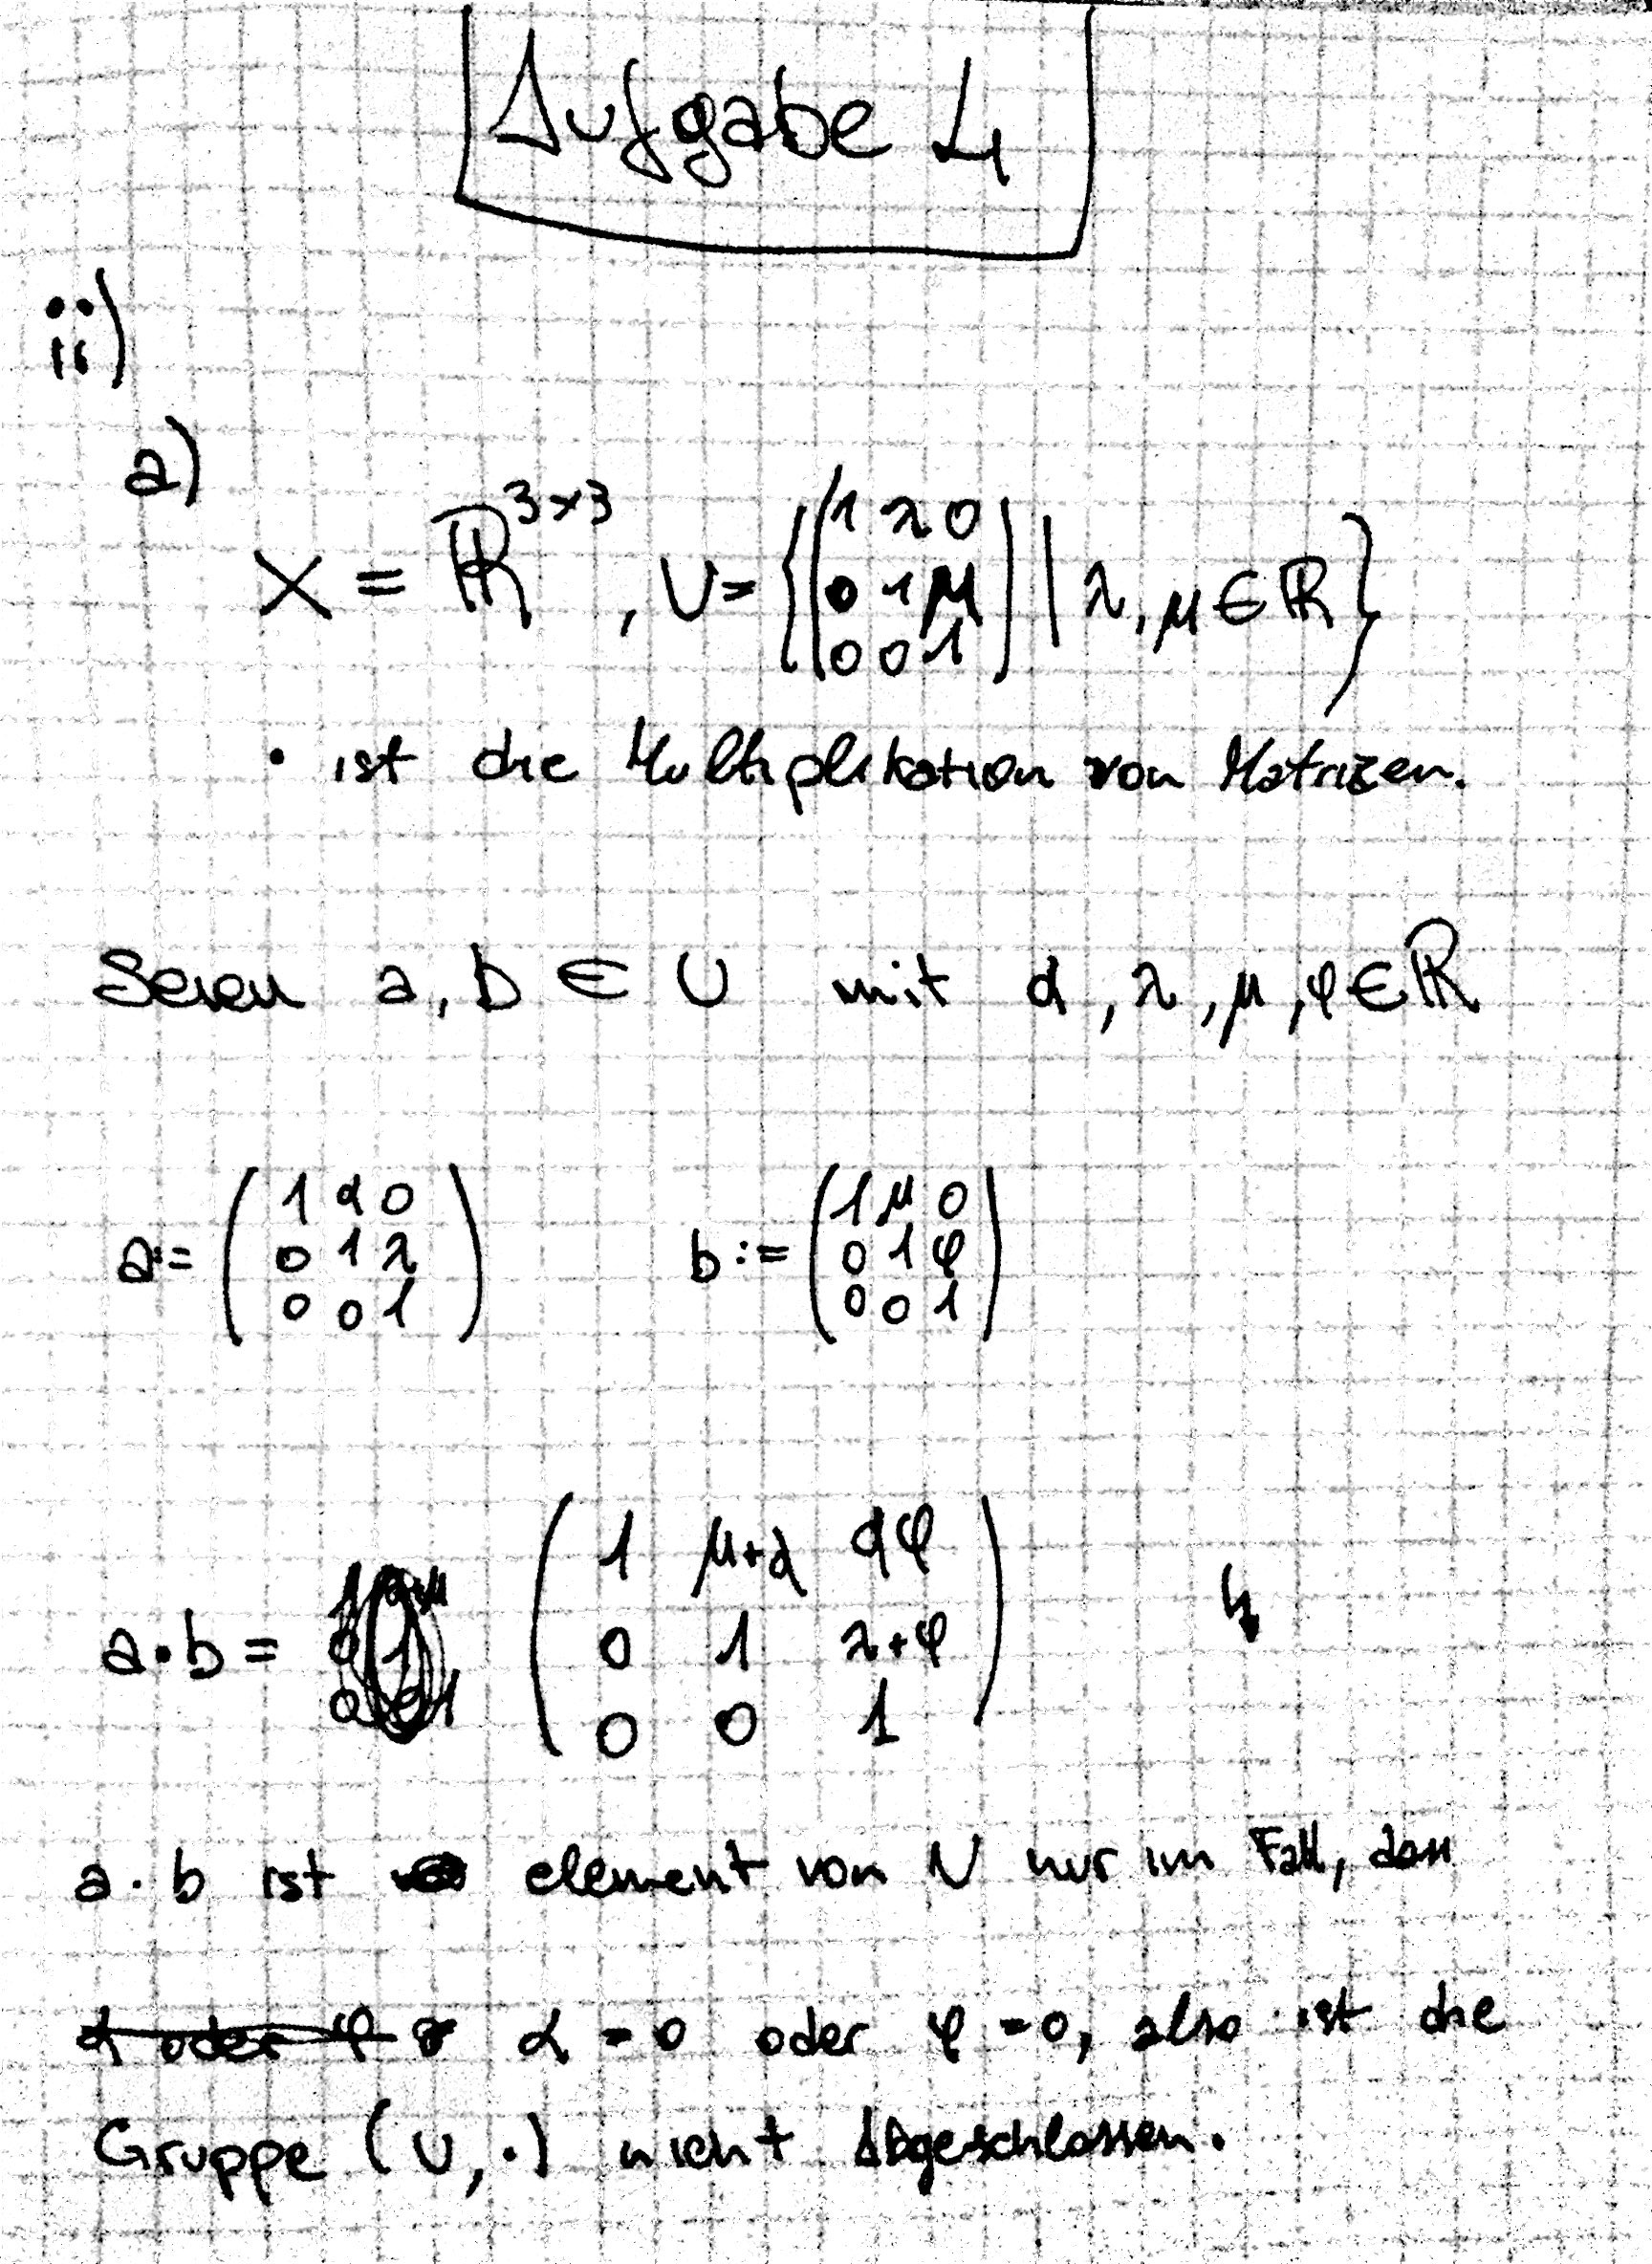 Aufgabe 4
ii)
a)
X = ℝ^{3×3}, U = {(1 λ 0 / 0 1 μ / 0 0 1) | λ, μ ∈ ℝ}
• ist die Multiplikation von Matrizen.
Seien a, b ∈ U mit α, λ, μ, φ ∈ ℝ
a := (1 α 0 / 0 1 λ / 0 0 1) b := (1 μ 0 / 0 1 φ / 0 0 1)
a • b = (1 μ+α αφ / 0 1 λ+φ / 0 0 1) ↯
a · b ist element von U nur im Fall, dass
α oder φ α = 0 oder φ = 0, also ist die
Gruppe (U, ·) nicht Abgeschlossen.